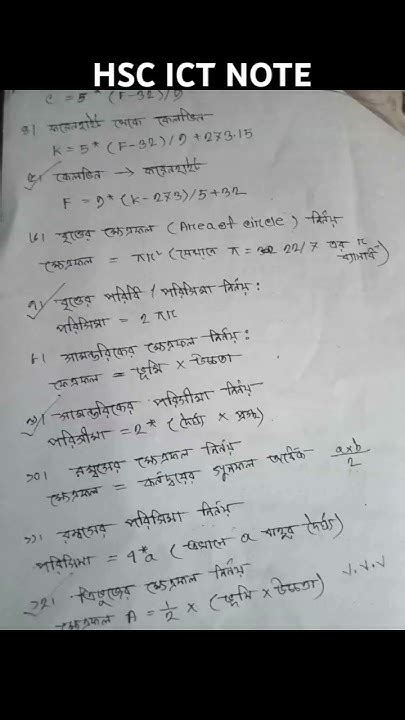 HSC ICT NOTE
C = 5 * (F-32)/9
৪। ফারেনহাইট থেকে কেলভিন
K = 5* (F-32)/9 +273.15
৫। কেলভিন → ফারেনহাইট
F = 9* (K-273)/5+32
৬। বৃত্তের ক্ষেত্রফল (Area of circle) নির্ণয়
ক্ষেত্রফল = πr² (যেখানে π = 22/7 এবং r ব্যাসার্ধ)
৭। বৃত্তের পরিধি / পরিসিমা নির্ণয়:
পরিসিমা = 2πr
৮। আয়তক্ষেত্রের ক্ষেত্রফল নির্ণয়:
ক্ষেত্রফল = ভূমি × উচ্চতা
৯। আয়তক্ষেত্রের পরিসীমা নির্ণয়
পরিসীমা = 2* (দৈর্ঘ্য × প্রস্থ)
১০। রম্বসের ক্ষেত্রফল নির্ণয়
ক্ষেত্রফল = কর্ণদ্বয়ের গুনফল অর্ধেক a×b/2
১১। রম্বসের পরিসিমা নির্ণয়
পরিসিমা = 4*a (এখানে a বাহুর দৈর্ঘ্য)
১২। ত্রিভুজের ক্ষেত্রফল নির্ণয় V.V.V
ক্ষেত্রফল A = 1/2 × (ভূমি × উচ্চতা)